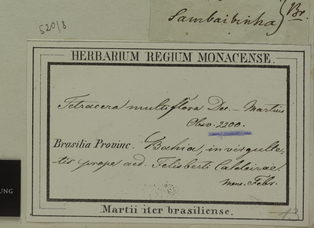 Br.
Sambaibinha
520/8
HERBARIUM REGIUM MONACENSE.
Tetracera multiflora Dec. – Martius
Obs. 2200.
Brasilia Provinc. Bahia, in virgulte-
tis prope aed. Felisberti Caldeirae.
Mens. Febr.
Martii iter brasiliense.
UNG